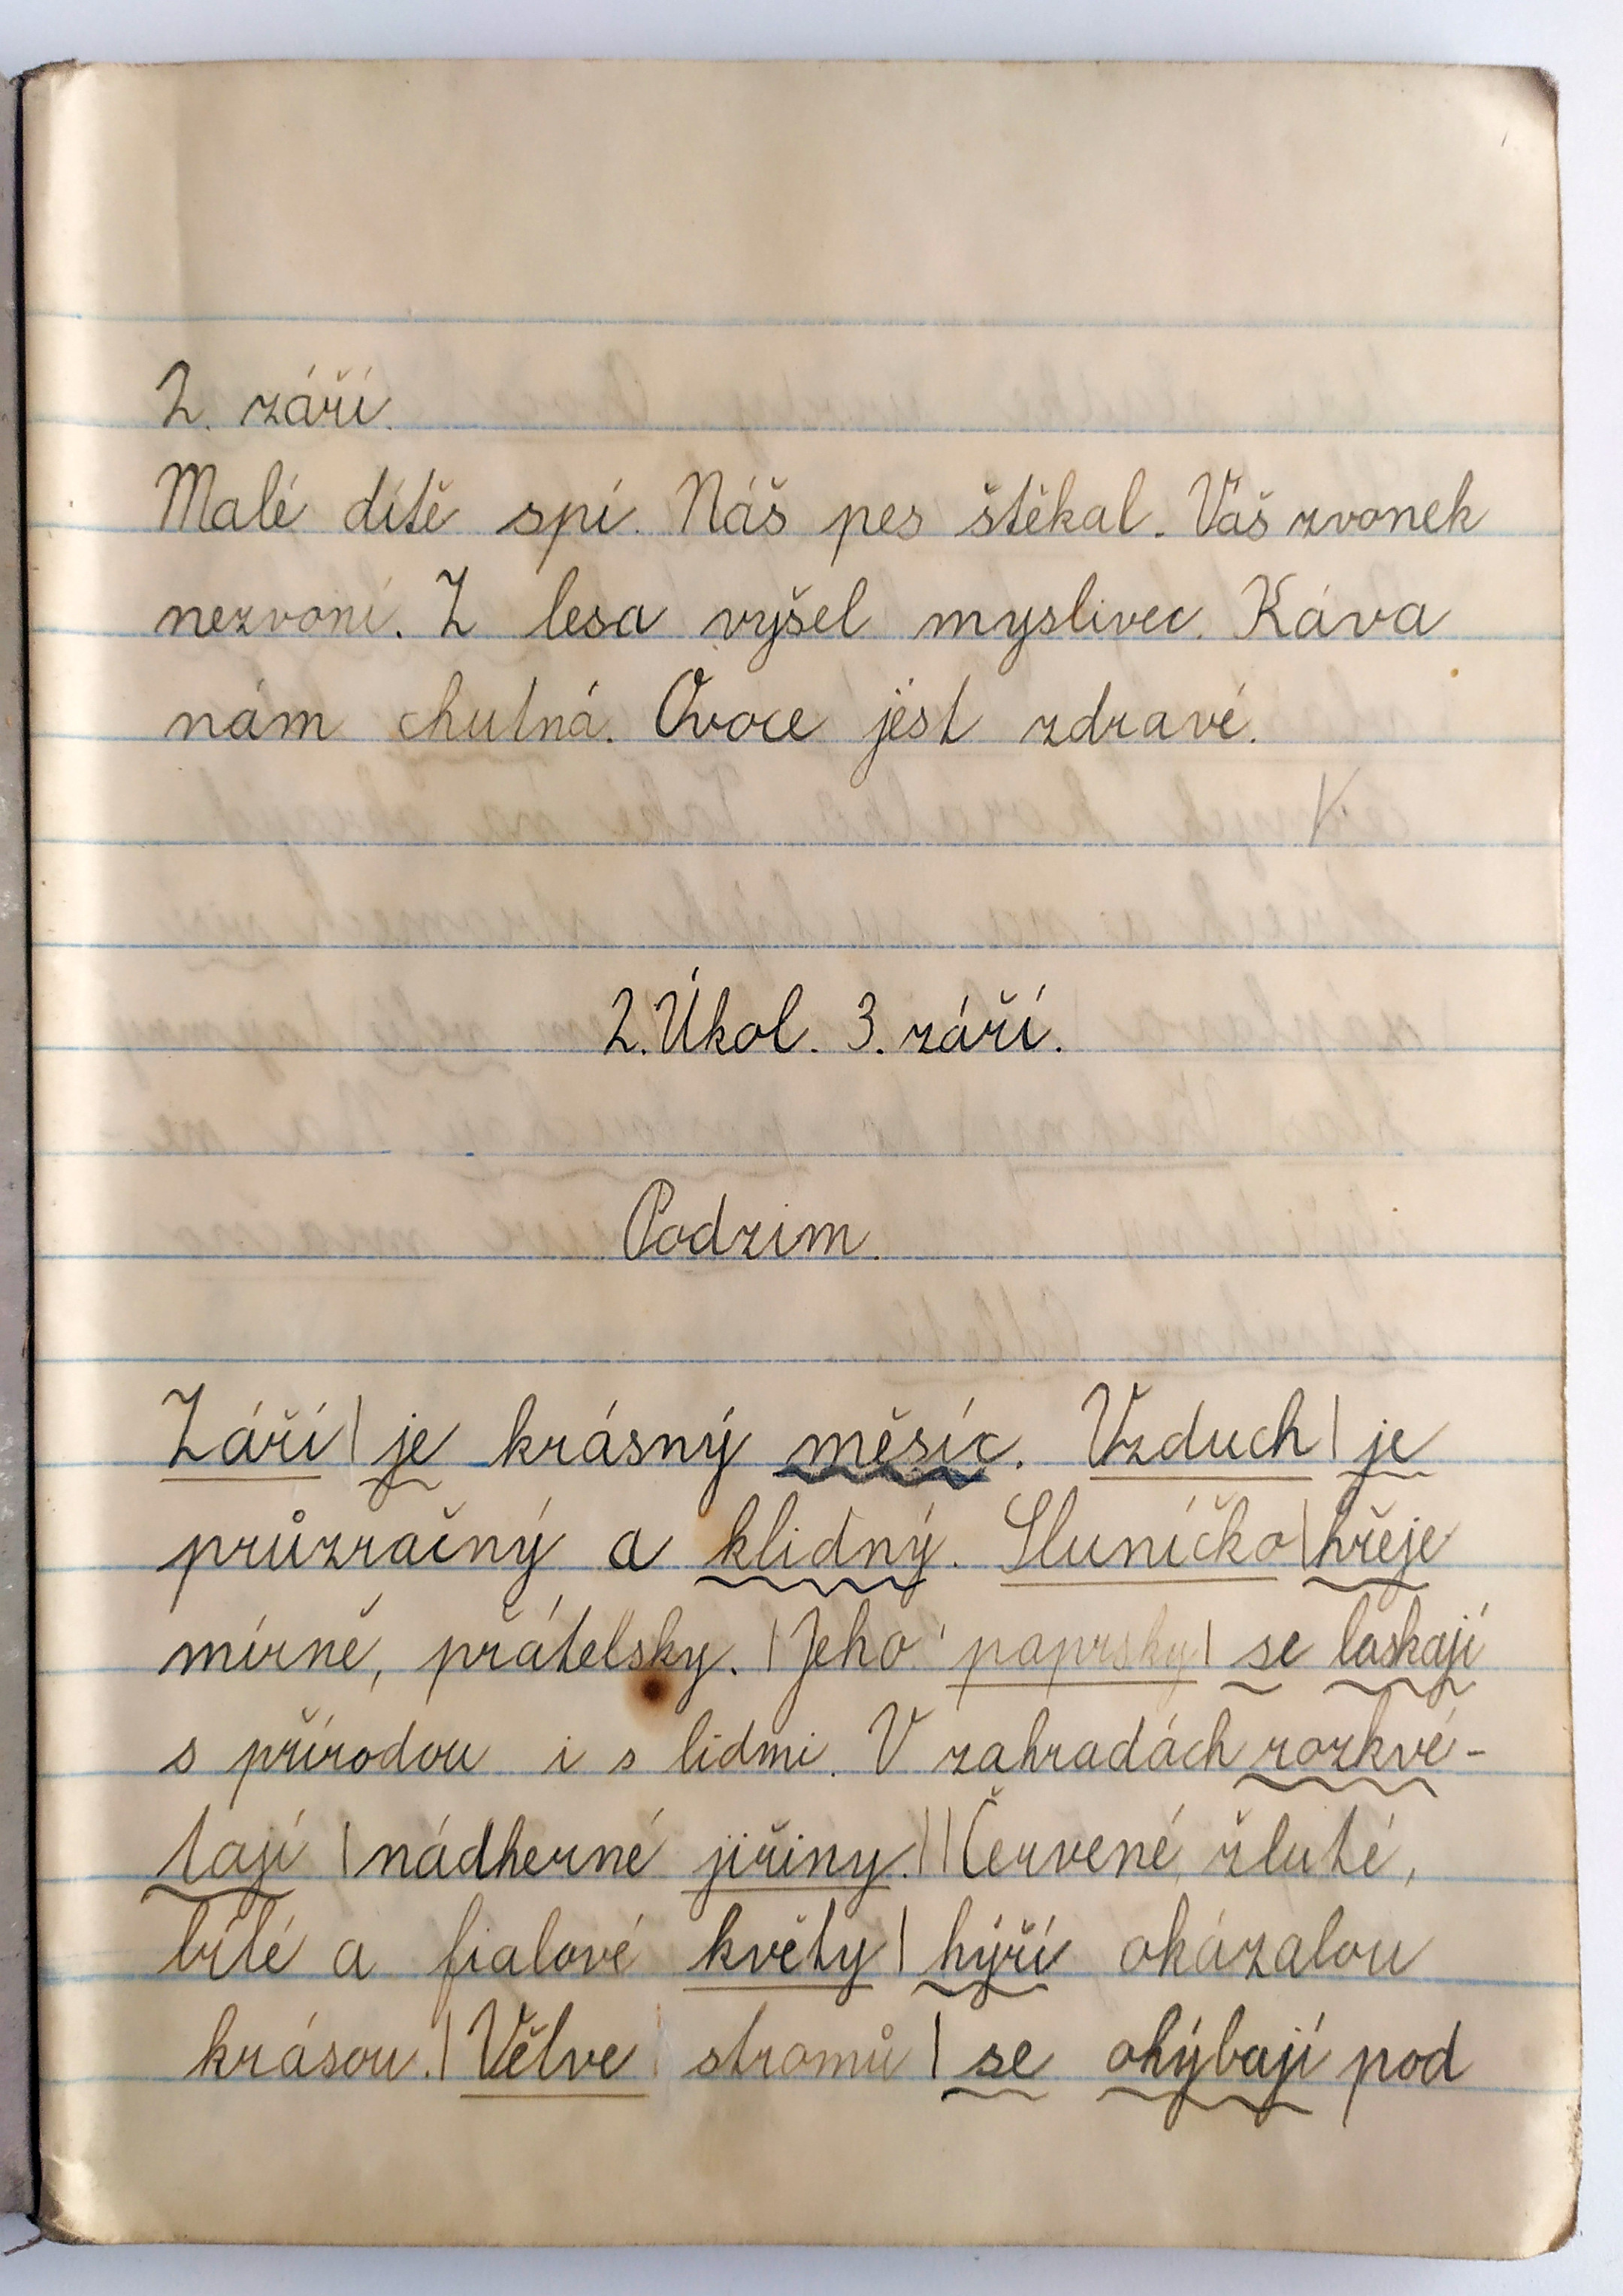 2. září.
Malé dítě spí. Náš pes štěkal. Váš zvonek
nezvoní. Z lesa vyšel myslivec. Káva
nám chutná. Ovoce jest zdravé.
2. Úkol. 3. září.
Podzim.
Září | je krásný měsíc. Vzduch | je
průzračný a klidný. Sluníčko | hřeje
mírně, přátelsky. | Jeho paprsky | se laskají
s přírodou i s lidmi. V zahradách rozkvé-
tají | nádherné jiřiny. || Červené, žluté,
bílé a fialové květy | hýří okázalou
krásou. | Větve stromů | se ohýbají pod